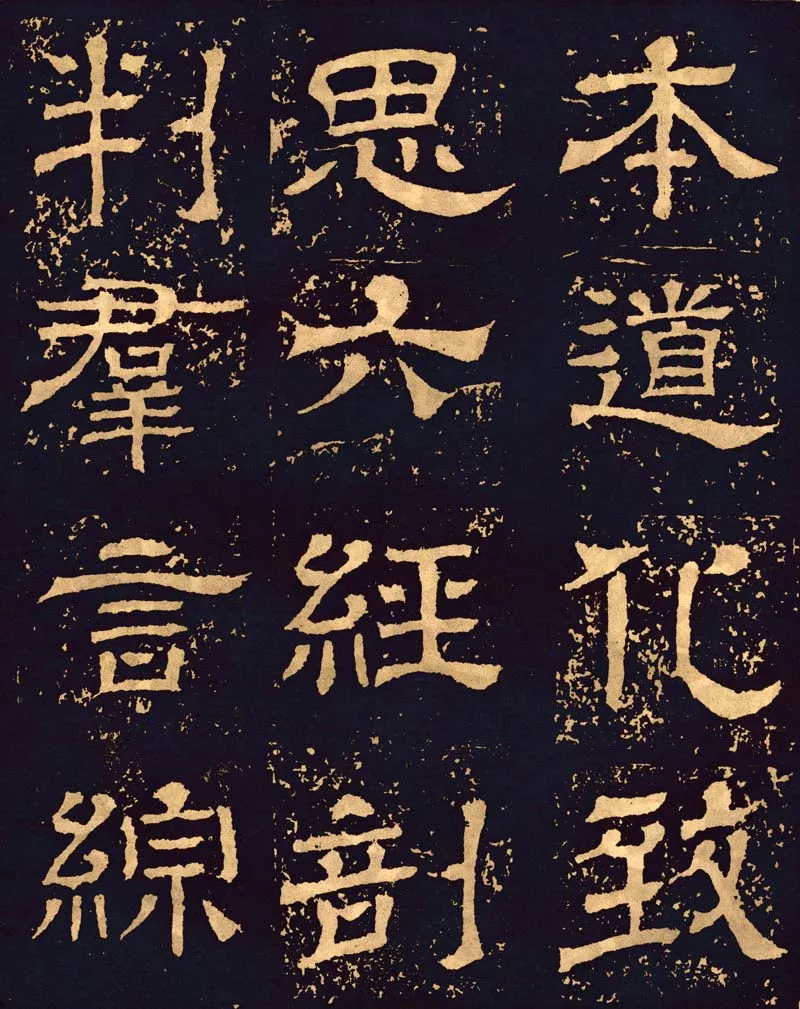 本道化致
思六經剖
判群言綜